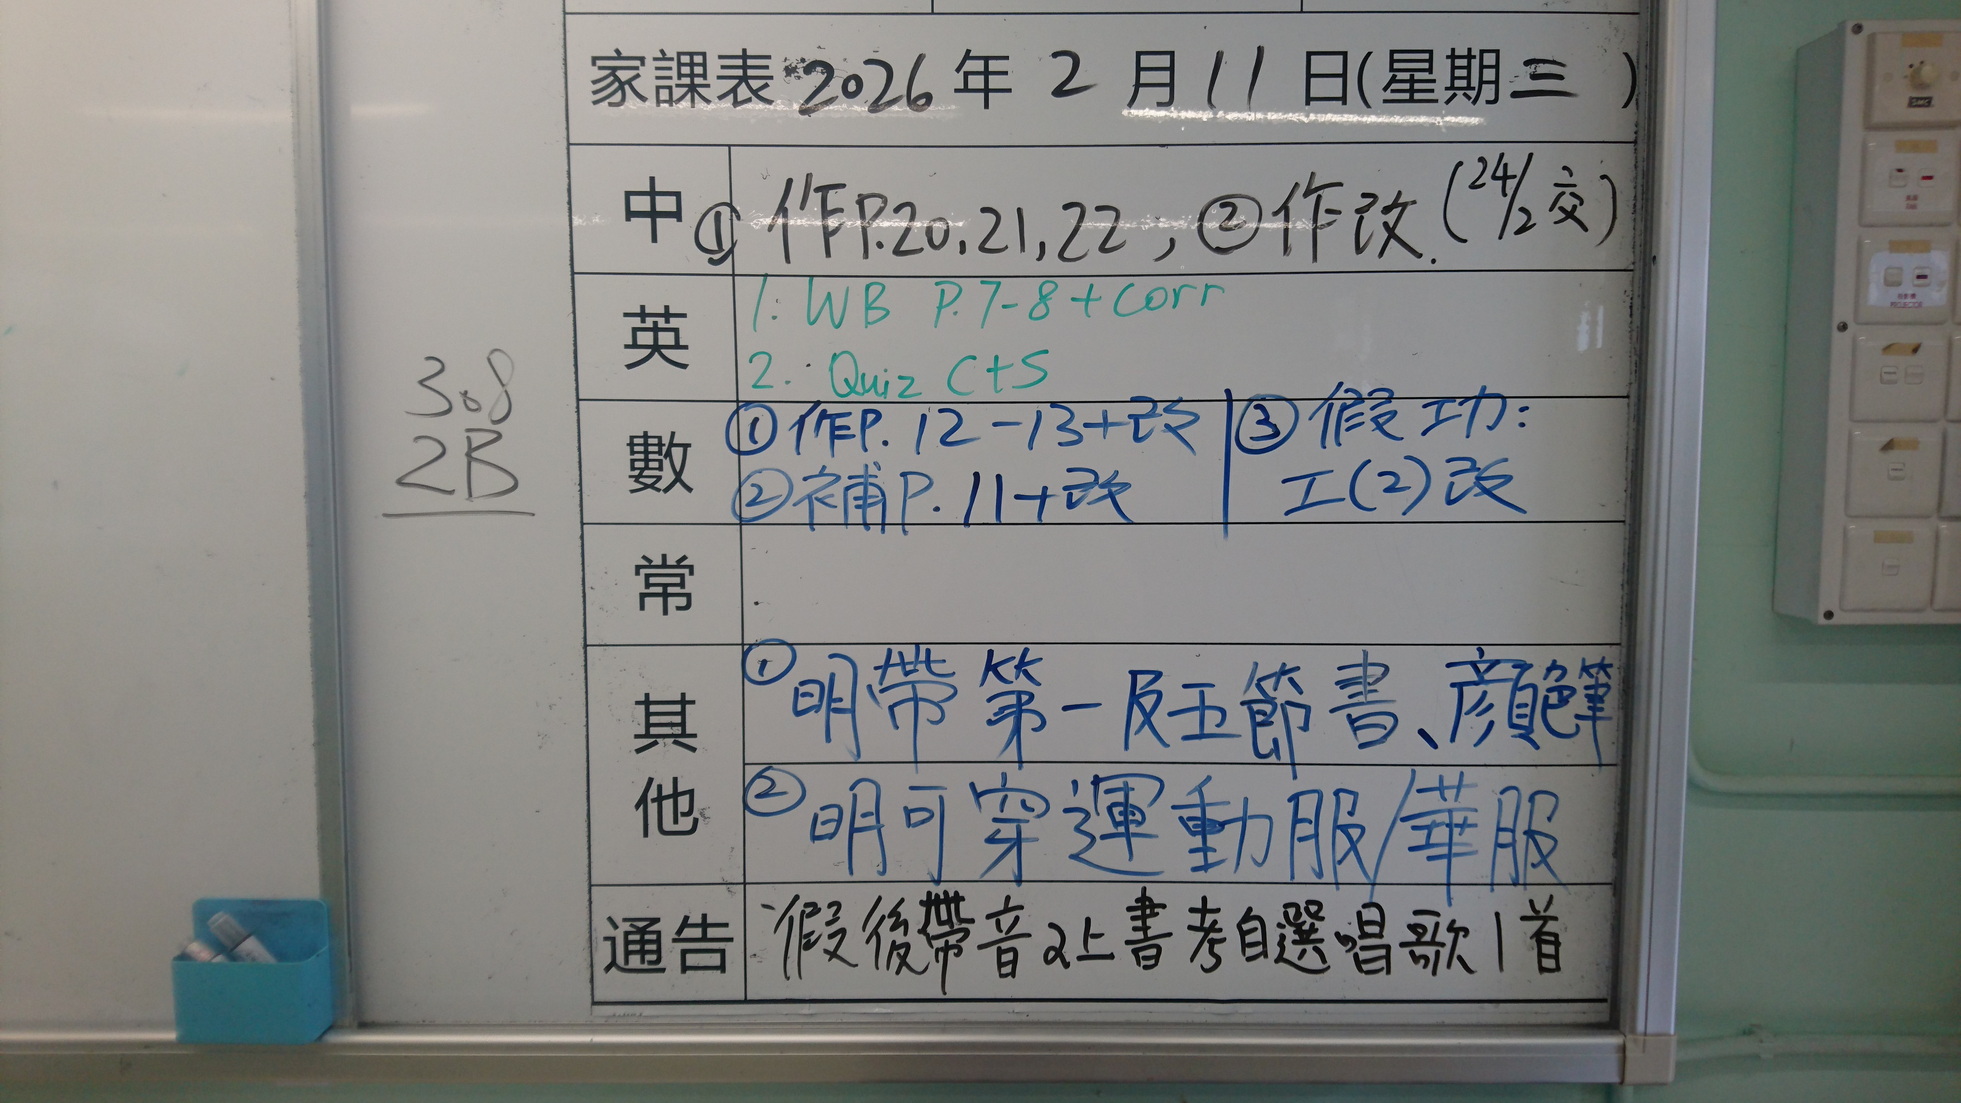 家課表 2026年 2 月 11 日(星期三 )
中 ① 作P.20,21,22 ; ②作改.(24/2交)
英 1. WB P.7-8+corr
2. Quiz C+S
數 ①作P.12-13+改 ③假功:
②補P.11+改 工(2)改
常
其他 ①明帶第一及五節書、顏色筆
②明可穿運動服/華服
通告 假後帶音2上書考自選唱歌1首
3.8
2B